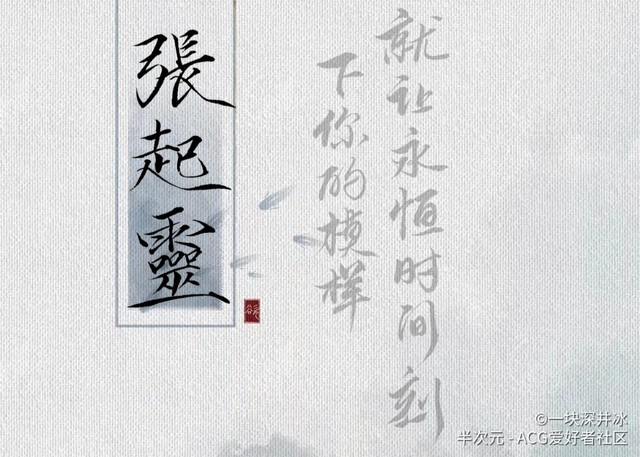 張起靈
就让永恒时间刻
下你的模样
©一块深井冰
半次元 - ACG爱好者社区